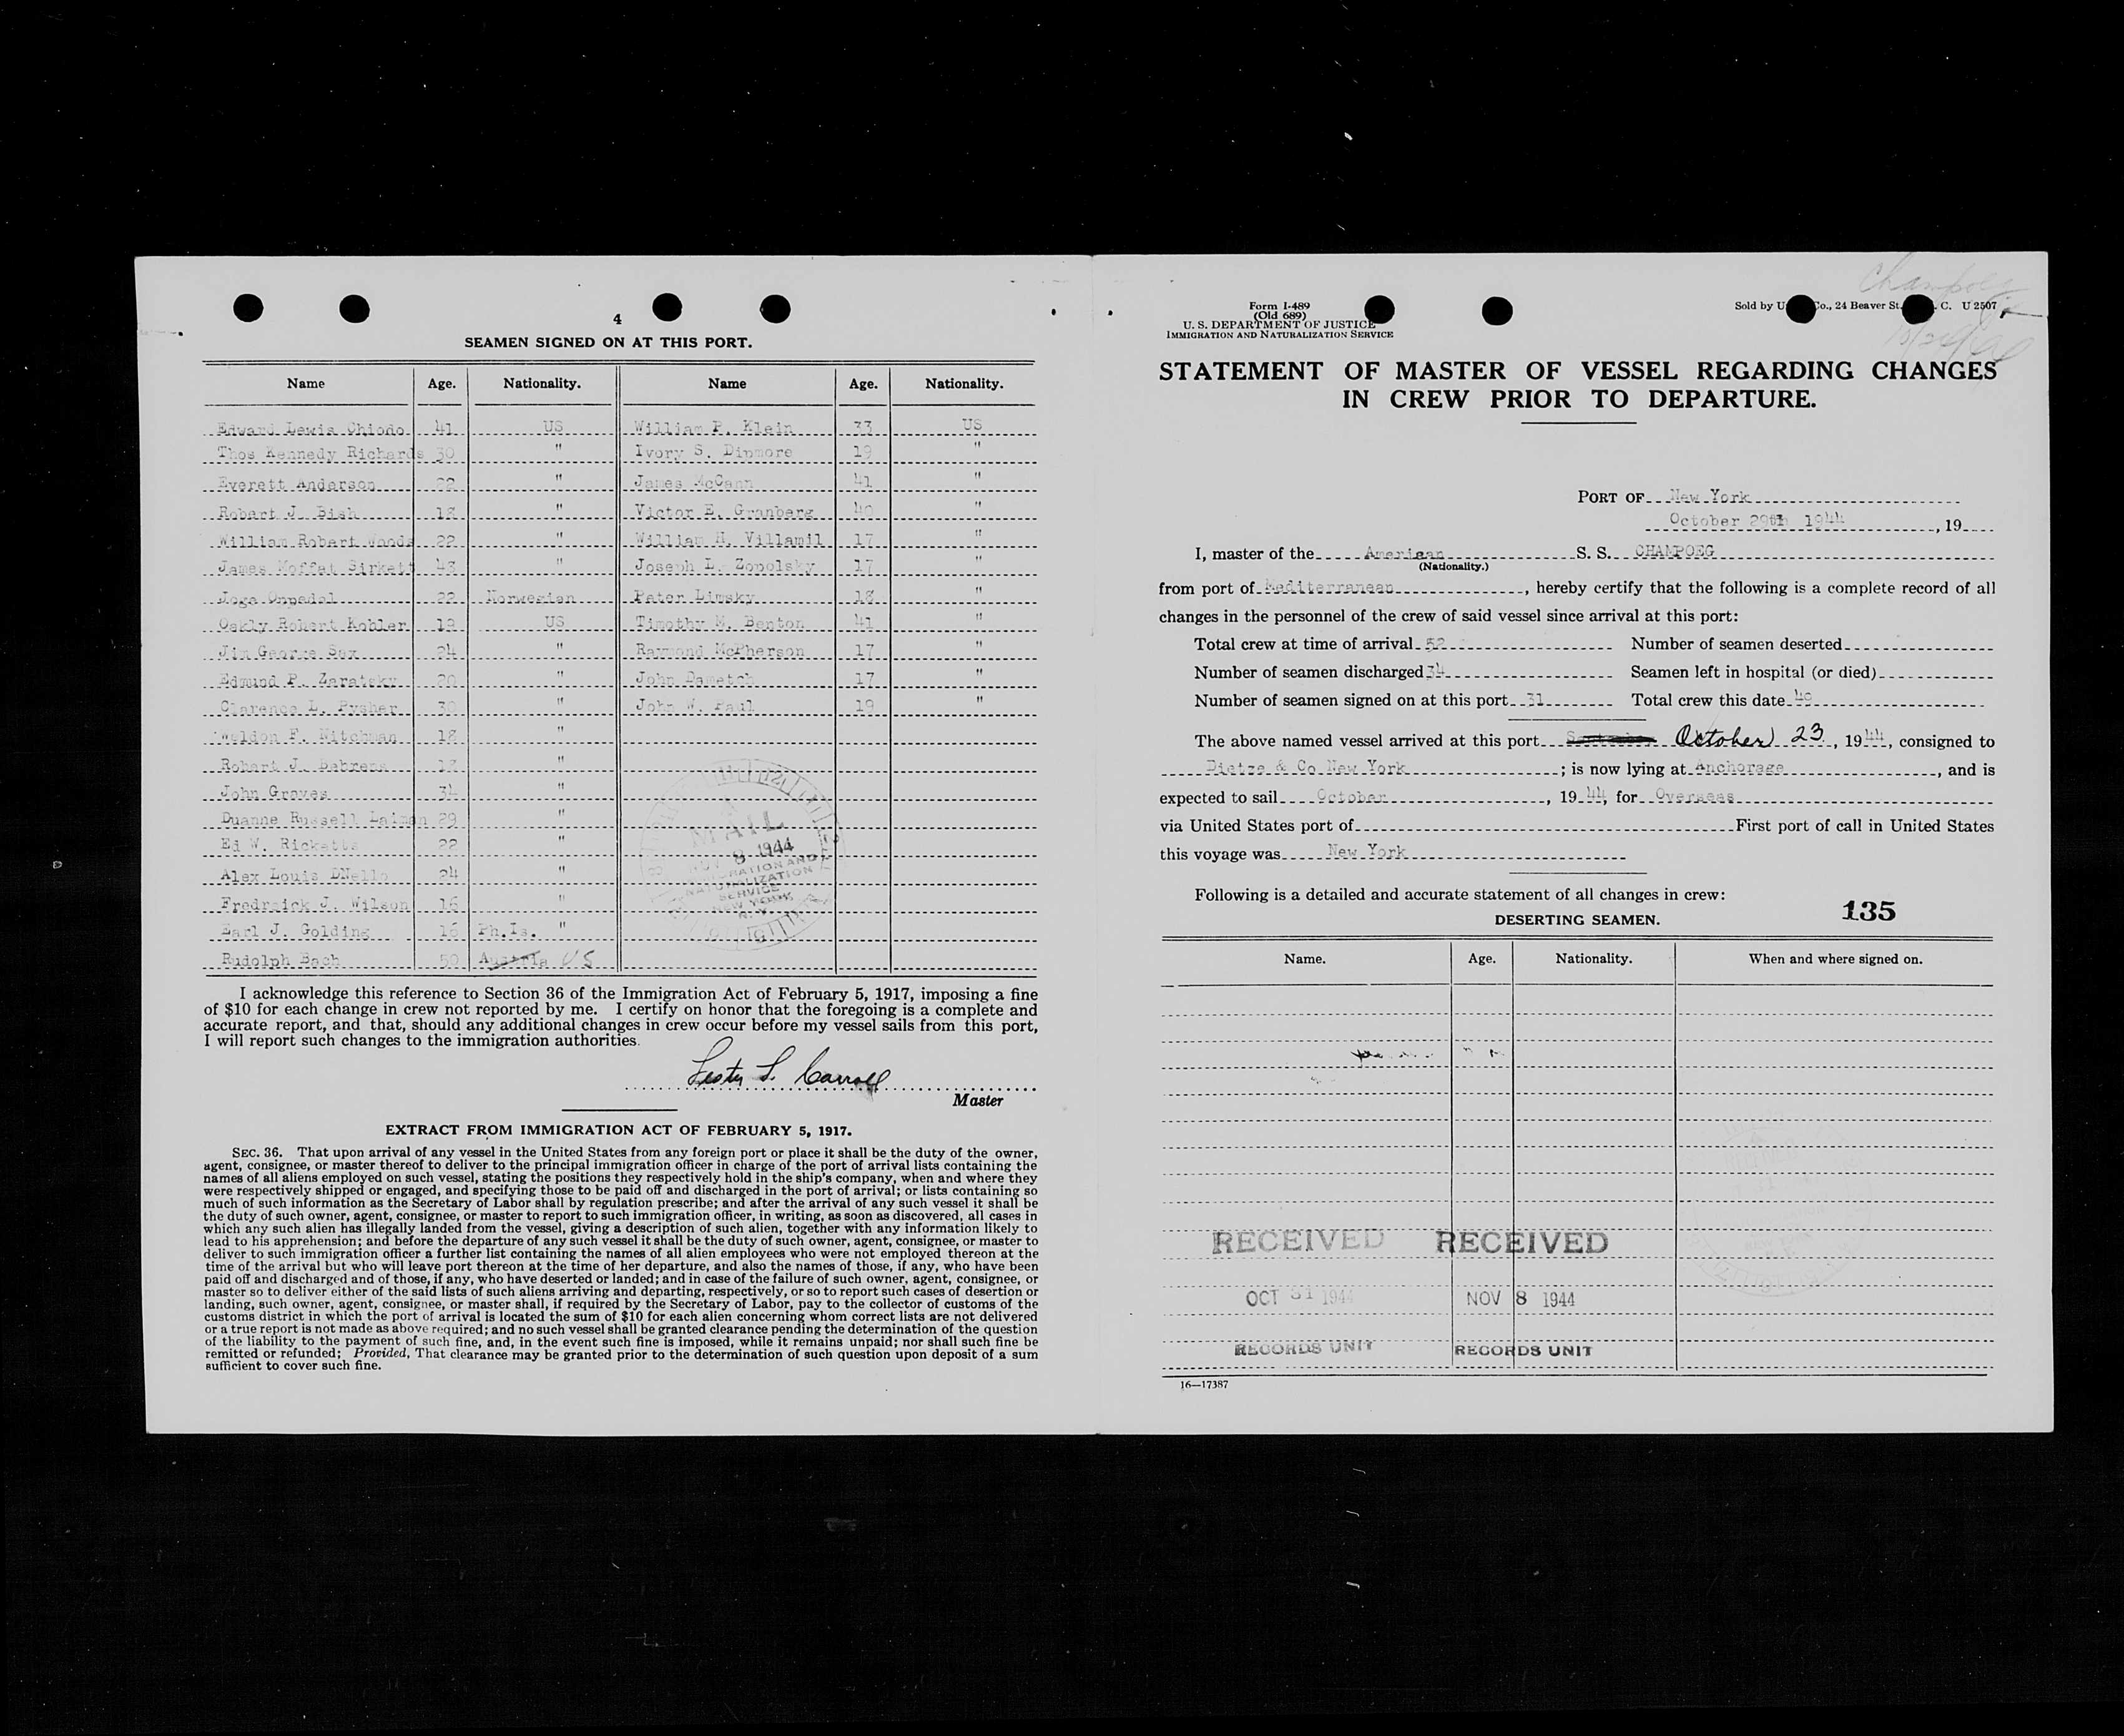 4
SEAMEN SIGNED ON AT THIS PORT.
Name Age. Nationality. Name Age. Nationality.
Edward Lewis Chiodo 41 US William P. Klein 33 US
Thos Kennedy Richards 30 " Ivory S. Dinmore 19 "
Everett Anderson 22 " James McCann 41 "
Robert J. Bish 18 " Victor E. Granberg 40 "
William Robert Woods 22 " William H. Villamil 17 "
James Moffat Sirkett 43 " Joseph L. Zopolsky 17 "
Joga Oppedal 22 Norwegian Peter Dimsky 18 "
Oakly Robert Kohler 19 US Timothy M. Benton 41 "
Jim George Sax 24 " Raymond McPherson 17 "
Edmund P. Zaratsky 20 " John Dametch 17 "
Clarence L. Pysher 30 " John W. Paul 19 "
Weldon F. Nitchman 18 "
Robert J. Behrens 18 "
John Groves 34 "
Duanne Russell Laiman 29 "
Ed W. Ricketts 22 "
Alex Louis DNello 24 "
Fredrick J. Wilson 16 "
Earl J. Golding 16 Ph.Is. "
Rudolph Bach 50 Austria US
MAIL
NOV 8 1944
IMMIGRATION AND
NATURALIZATION
SERVICE
NEW YORK
N. Y.
I acknowledge this reference to Section 36 of the Immigration Act of February 5, 1917, imposing a fine
of $10 for each change in crew not reported by me. I certify on honor that the foregoing is a complete and
accurate report, and that, should any additional changes in crew occur before my vessel sails from this port,
I will report such changes to the immigration authorities.
Lester L. Carroll
Master
EXTRACT FROM IMMIGRATION ACT OF FEBRUARY 5, 1917.
SEC. 36. That upon arrival of any vessel in the United States from any foreign port or place it shall be the duty of the owner,
agent, consignee, or master thereof to deliver to the principal immigration officer in charge of the port of arrival lists containing the
names of all aliens employed on such vessel, stating the positions they respectively hold in the ship's company, when and where they
were respectively shipped or engaged, and specifying those to be paid off and discharged in the port of arrival; or lists containing so
much of such information as the Secretary of Labor shall by regulation prescribe; and after the arrival of any such vessel it shall be
the duty of such owner, agent, consignee, or master to report to such immigration officer, in writing, as soon as discovered, all cases in
which any such alien has illegally landed from the vessel, giving a description of such alien, together with any information likely to
lead to his apprehension; and before the departure of any such vessel it shall be the duty of such owner, agent, consignee, or master to
deliver to such immigration officer a further list containing the names of all alien employees who were not employed thereon at the
time of the arrival but who will leave port thereon at the time of her departure, and also the names of those, if any, who have been
paid off and discharged and of those, if any, who have deserted or landed; and in case of the failure of such owner, agent, consignee, or
master so to deliver either of the said lists of such aliens arriving and departing, respectively, or so to report such cases of desertion or
landing, such owner, agent, consignee, or master shall, if required by the Secretary of Labor, pay to the collector of customs of the
customs district in which the port of arrival is located the sum of $10 for each alien concerning whom correct lists are not delivered
or a true report is not made as above required; and no such vessel shall be granted clearance pending the determination of the question
of the liability to the payment of such fine, and, in the event such fine is imposed, while it remains unpaid; nor shall such fine be
remitted or refunded; Provided, That clearance may be granted prior to the determination of such question upon deposit of a sum
sufficient to cover such fine.
Champoeg
Form I-489
(Old 689)
U. S. DEPARTMENT OF JUSTICE
IMMIGRATION AND NATURALIZATION SERVICE
Sold by U Co., 24 Beaver St. C. U 2507
STATEMENT OF MASTER OF VESSEL REGARDING CHANGES
IN CREW PRIOR TO DEPARTURE.
PORT OF New York
October 29th 1944, 19
I, master of the American S. S. CHAMPOEG
(Nationality.)
from port of Mediterranean, hereby certify that the following is a complete record of all
changes in the personnel of the crew of said vessel since arrival at this port:
Total crew at time of arrival 52 Number of seamen deserted
Number of seamen discharged 34 Seamen left in hospital (or died)
Number of seamen signed on at this port 31 Total crew this date 49
The above named vessel arrived at this port October 23, 1944, consigned to
Dietze & Co New York; is now lying at Anchorage, and is
expected to sail October, 1944, for Overseas
via United States port of First port of call in United States
this voyage was New York
Following is a detailed and accurate statement of all changes in crew:
135
DESERTING SEAMEN.
Name. Age. Nationality. When and where signed on.
RECEIVED RECEIVED
OCT 31 1944 NOV 8 1944
RECORDS UNIT RECORDS UNIT
16—17387